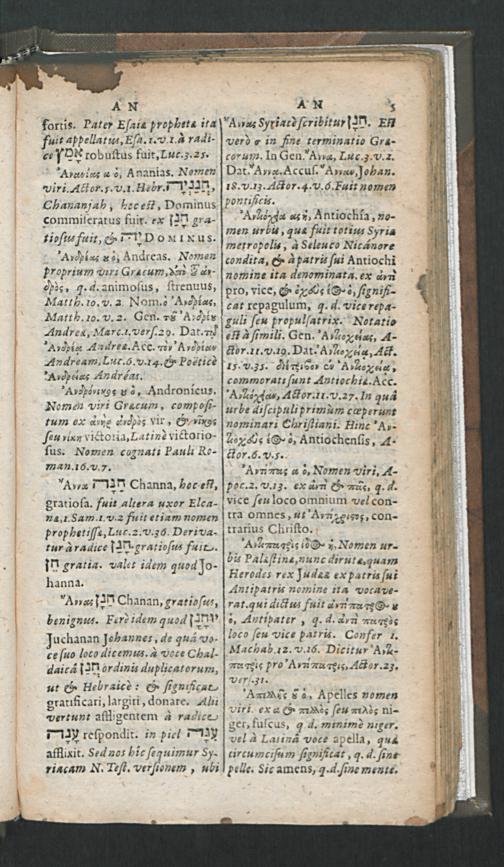 AN
AN
5
fortis. Pater Esaiæ prophetæ ita
fuit appellatus, Esa.1.v.1. à radi-
ce אמץ robustus fuit, Luc.3.25.
Ἀνανίας ου ὁ, Ananias. Nomen
viri. Actor.5.v.1. Hebr. חנניה,
Chananjah, hoc est, Dominus
commiseratus fuit. ex חנן gra-
tiosus fuit, & יה DOMINUS.
Ἀνδρέας ου ὁ, Andreas. Nomen
proprium viri Græcum, ἀπὸ τοῦ ἀν-
δρὸς, q.d. animosus, strenuus,
Matth.10.v.2. Nom. ὁ Ἀνδρέας,
Matth.10.v.2. Gen. τοῦ Ἀνδρέου
Andreæ, Marc.1.vers.29. Dat. τῷ
Ἀνδρέᾳ Andreæ. Acc. τὸν Ἀνδρέαν
Andream, Luc.6.v.14. & Poëticè
Ἀνδρείας Andréas.
Ἀνδρόνικος ου ὁ, Andronicus.
Nomen viri Græcum, composi-
tum ex ἀνὴρ ἀνδρὸς vir, & νῖκος
seu νίκη victoria, Latinè victorio-
sus. Nomen cognati Pauli Ro-
man.16.v.7.
Ἄννα חנה Channa, hoc est,
gratiosa. fuit altera uxor Elca-
næ, 1.Sam.1.v.2 fuit etiam nomen
prophetissæ, Luc.2.v.36. Deriva-
tur à radice חנן gratiosus fuit.
חן gratia. valet idem quod Jo-
hanna.
Ἄννας חנן Chanan, gratiosus,
benignus. Ferè idem quod יוחנן
Juchanan Johannes, de quâ vo-
ce suo loco dicemus. à voce Chal-
daicâ חנן ordinis duplicatorum,
ut & Hebraicè: & significat
gratificari, largiri, donare. Alii
vertunt affligentem à radice
ענה respondit. in piel ענה
afflixit. Sed nos hic sequimur Sy-
riacam N. Test. versionem, ubi
Ἄννας Syriacè scribitur חנן. Est
verò σ in fine terminatio Græ-
corum. In Gen. Ἄννα, Luc.3.v.2.
Dat. Ἄννᾳ. Accus. Ἄνναν, Johan.
18.v.13. Actor.4.v.6. Fuit nomen
pontificis.
Ἀντιόχεια ας ἡ, Antiochîa, no-
men urbis, quæ fuit totius Syriæ
metropolis, à Seleuco Nicánore
condita, & à patris sui Antiochi
nomine ita denominata. ex ἀντὶ
pro, vice, & ὀχεὺς έος ὁ, signifi-
cat repagulum, q.d. vice repa-
guli seu propulsatrix. Notatio
est à simili. Gen. Ἀντιοχείας, A-
ctor.11.v.19. Dat. Ἀντιοχείᾳ, Act.
15.v.35. διέτριβον ἐν Ἀντιοχείᾳ,
commorati sunt Antiochiæ. Acc.
Ἀντιόχειαν, Actor.11.v.27. In quâ
urbe discipuli primùm cœperunt
nominari Christiani. Hinc Ἀν-
τιοχεὺς έος ὁ, Antiochensis, A-
ctor.6.v.5.
Ἀντίπας α ὁ, Nomen viri, A-
poc.2.v.13. ex ἀντὶ & πᾶς, q.d.
vice seu loco omnium vel con-
tra omnes, ut Ἀντίχριστος, con-
trarius Christo.
Ἀντιπατρὶς ίδος ἡ. Nomen ur-
bis Palæstinæ, nunc dirutæ, quam
Herodes rex Judææ ex patris sui
Antipatris nomine ita vocave-
rat. qui dictus fuit ἀντίπατρος ου
ὁ, Antipater, q.d. ἀντὶ πατρὸς
loco seu vice patris. Confer 1.
Machab.12.v.16. Dicitur Ἀντι-
πατρὶς pro Ἀντίπατρις, Actor.23.
ver.31.
Ἀπελλῆς οῦ ὁ, Apelles nomen
viri. ex α & πελλὸς seu πελὸς ni-
ger, fuscus, q.d. minimè niger.
vel à Latinâ voce apella, quæ
circumcisum significat, q.d. sine
pelle. Sic amens, q.d. sine mente.